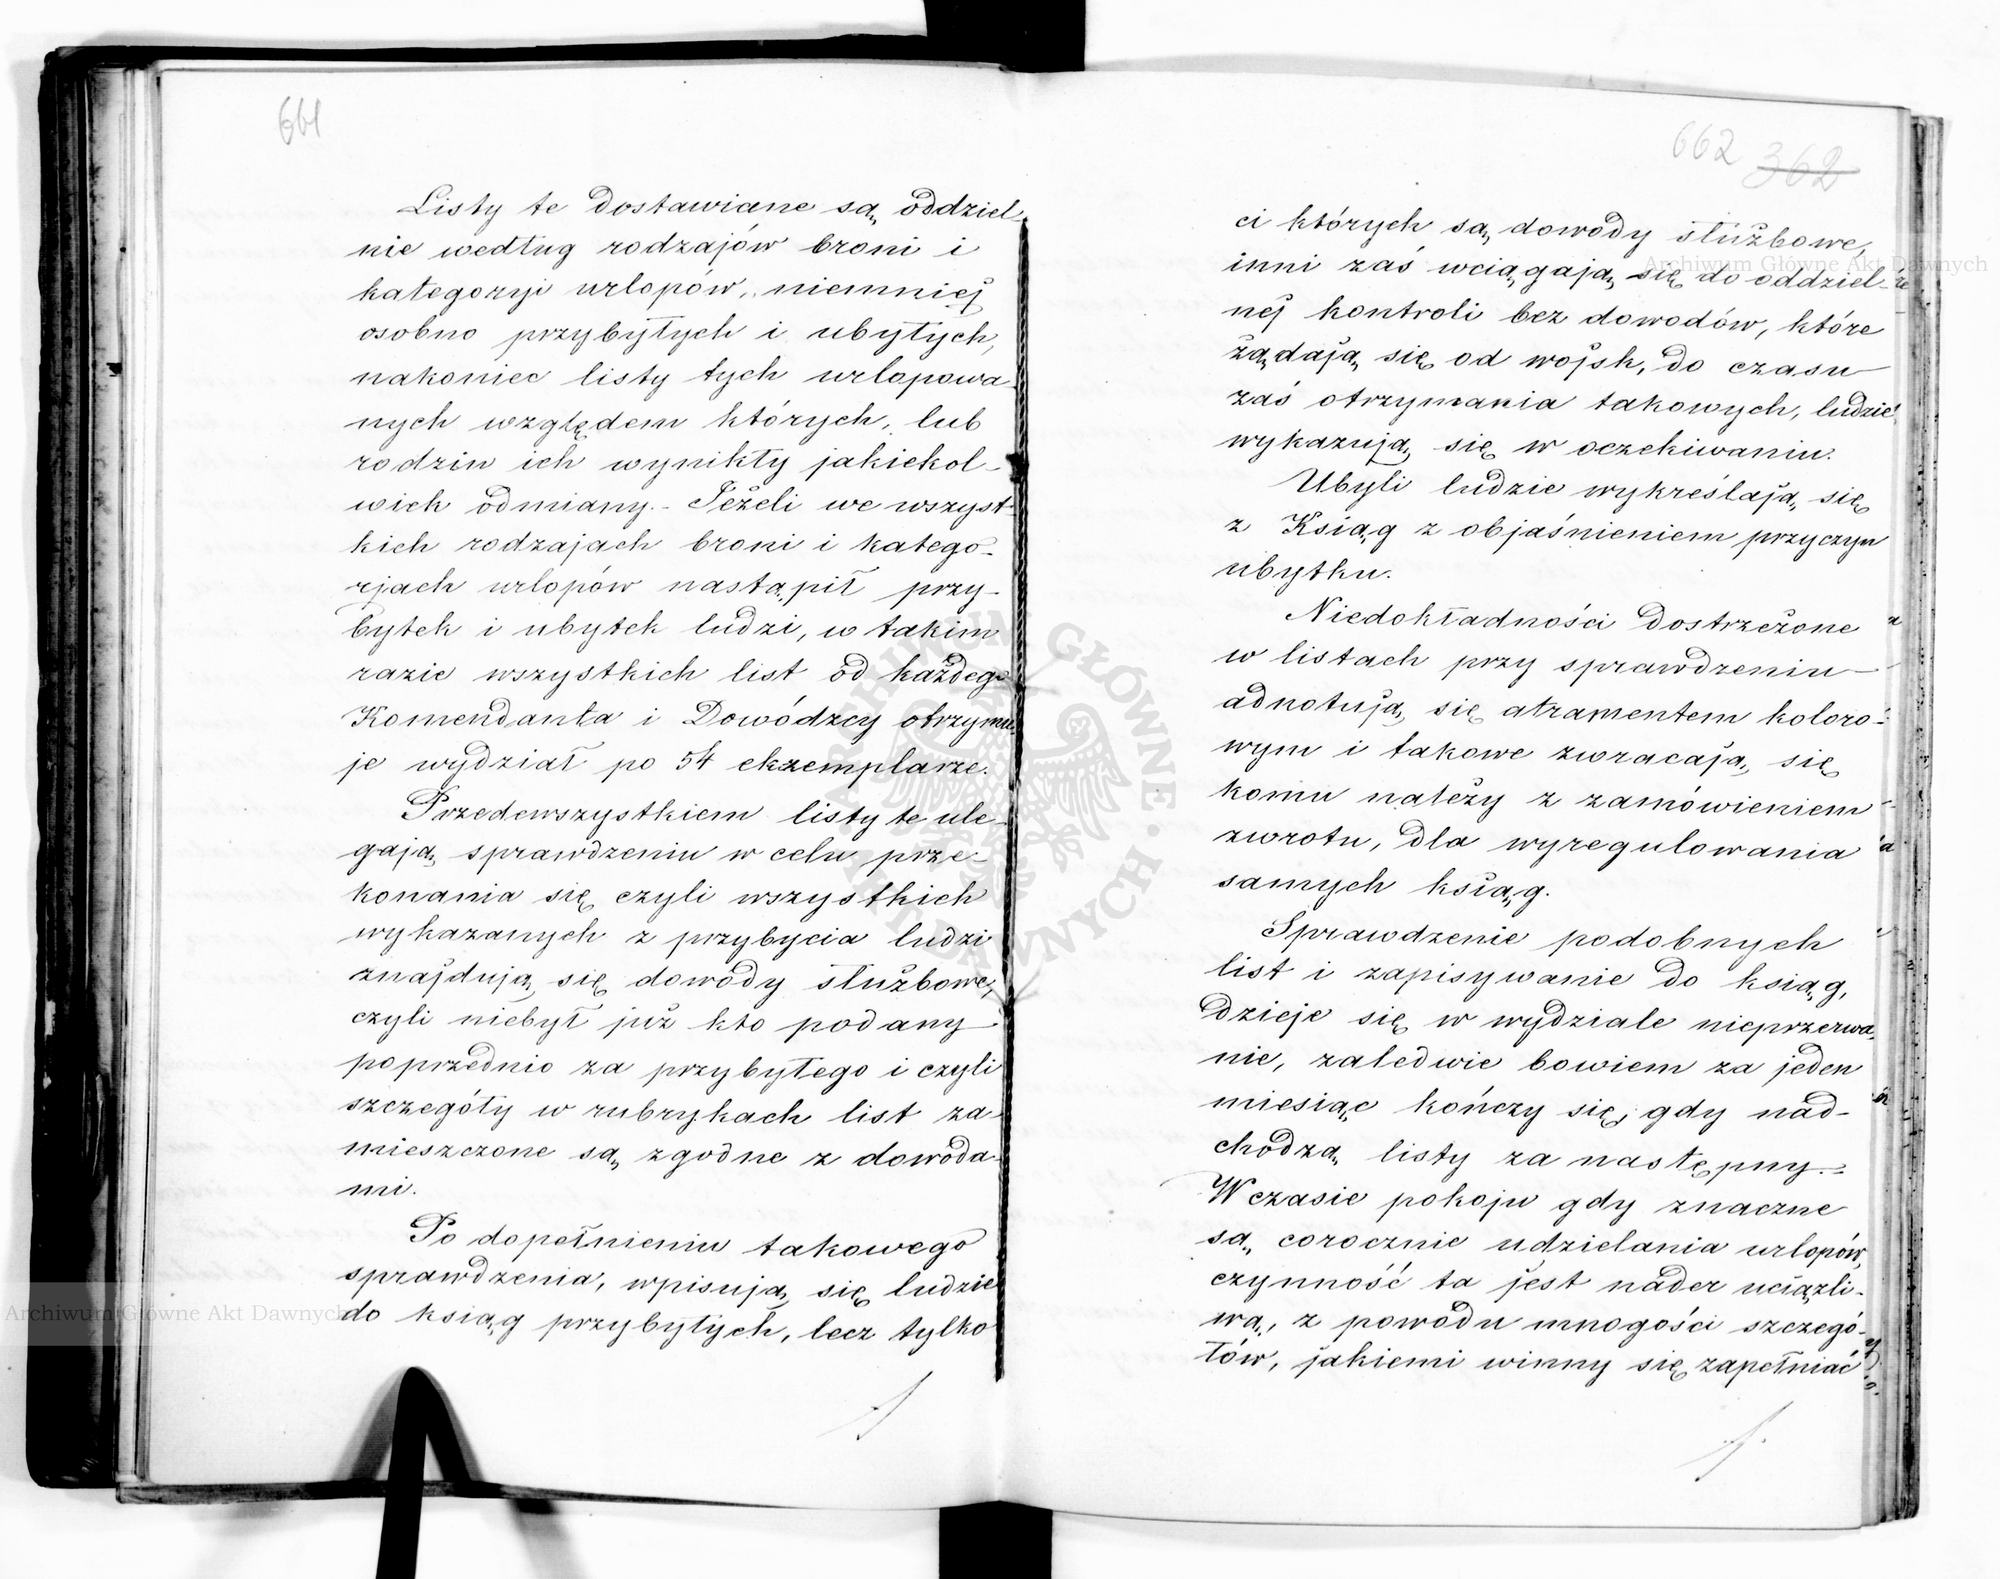 661
Listy te dostawiane są oddziel-
nie według rodzajów broni i
kategoryi urlopów, niemniej
osobno przybyłych i ubyłych,
nakoniec listy tych urlopowa-
nych względem których, lub
rodzin ich wynikły jakiekol-
wiek odmiany.- Jeżeli we wszyst-
kich rodzajach broni i katego-
rjach urlopów nastąpił przy-
bytek i ubytek ludzi, w takim
razie wszystkich list od każdego
Komendanta i Dowódzcy otrzymu-
je wydział po 54 ekzemplarze.
Przedewszystkiem listy te ule-
gają sprawdzeniu w celu prze-
konania się czyli wszystkich
wykazanych z przybycia ludzi
znajdują się dowody służbowe,
czyli niebył już kto podany
poprzednio za przybyłego i czyli
szczegóły w rubrykach list za-
mieszczone są zgodne z dowoda-
mi.
Po dopełnieniu takowego
sprawdzenia, wpisują się ludzie
do ksiąg przybyłych, lecz tylko
662 362
ci których są dowody służbowe,
inni zaś wciągają się do oddziel-
nej kontroli bez dowodów, które
żądają się od wojsk, do czasu
zaś otrzymania takowych, ludzie
wykazują się w oczekiwaniu.
Ubyli ludzie wykreślają się
z Ksiąg z objaśnieniem przyczyn
ubytku.
Niedokładności dostrzeżone
w listach przy sprawdzeniu
adnotują się atramentem koloro-
wym i takowe zwracają się
komu należy z zamówieniem
zwrotu, dla wyregulowania
samych ksiąg.
Sprawdzenie podobnych
list i zapisywanie do ksiąg,
dzieje się w wydziale nieprzerwa-
nie, zaledwie bowiem za jeden
miesiąc kończy się, gdy nad-
chodzą listy za następny.-
W czasie pokoju gdy znaczne
są corocznie udzielania urlopów,
czynność ta jest nader uciążli-
wą, z powodu mnogości szczegó-
łów, jakiemi winny się zapełniać
Archiwum Główne Akt Dawnych
Archiwum Główne Akt Dawnych